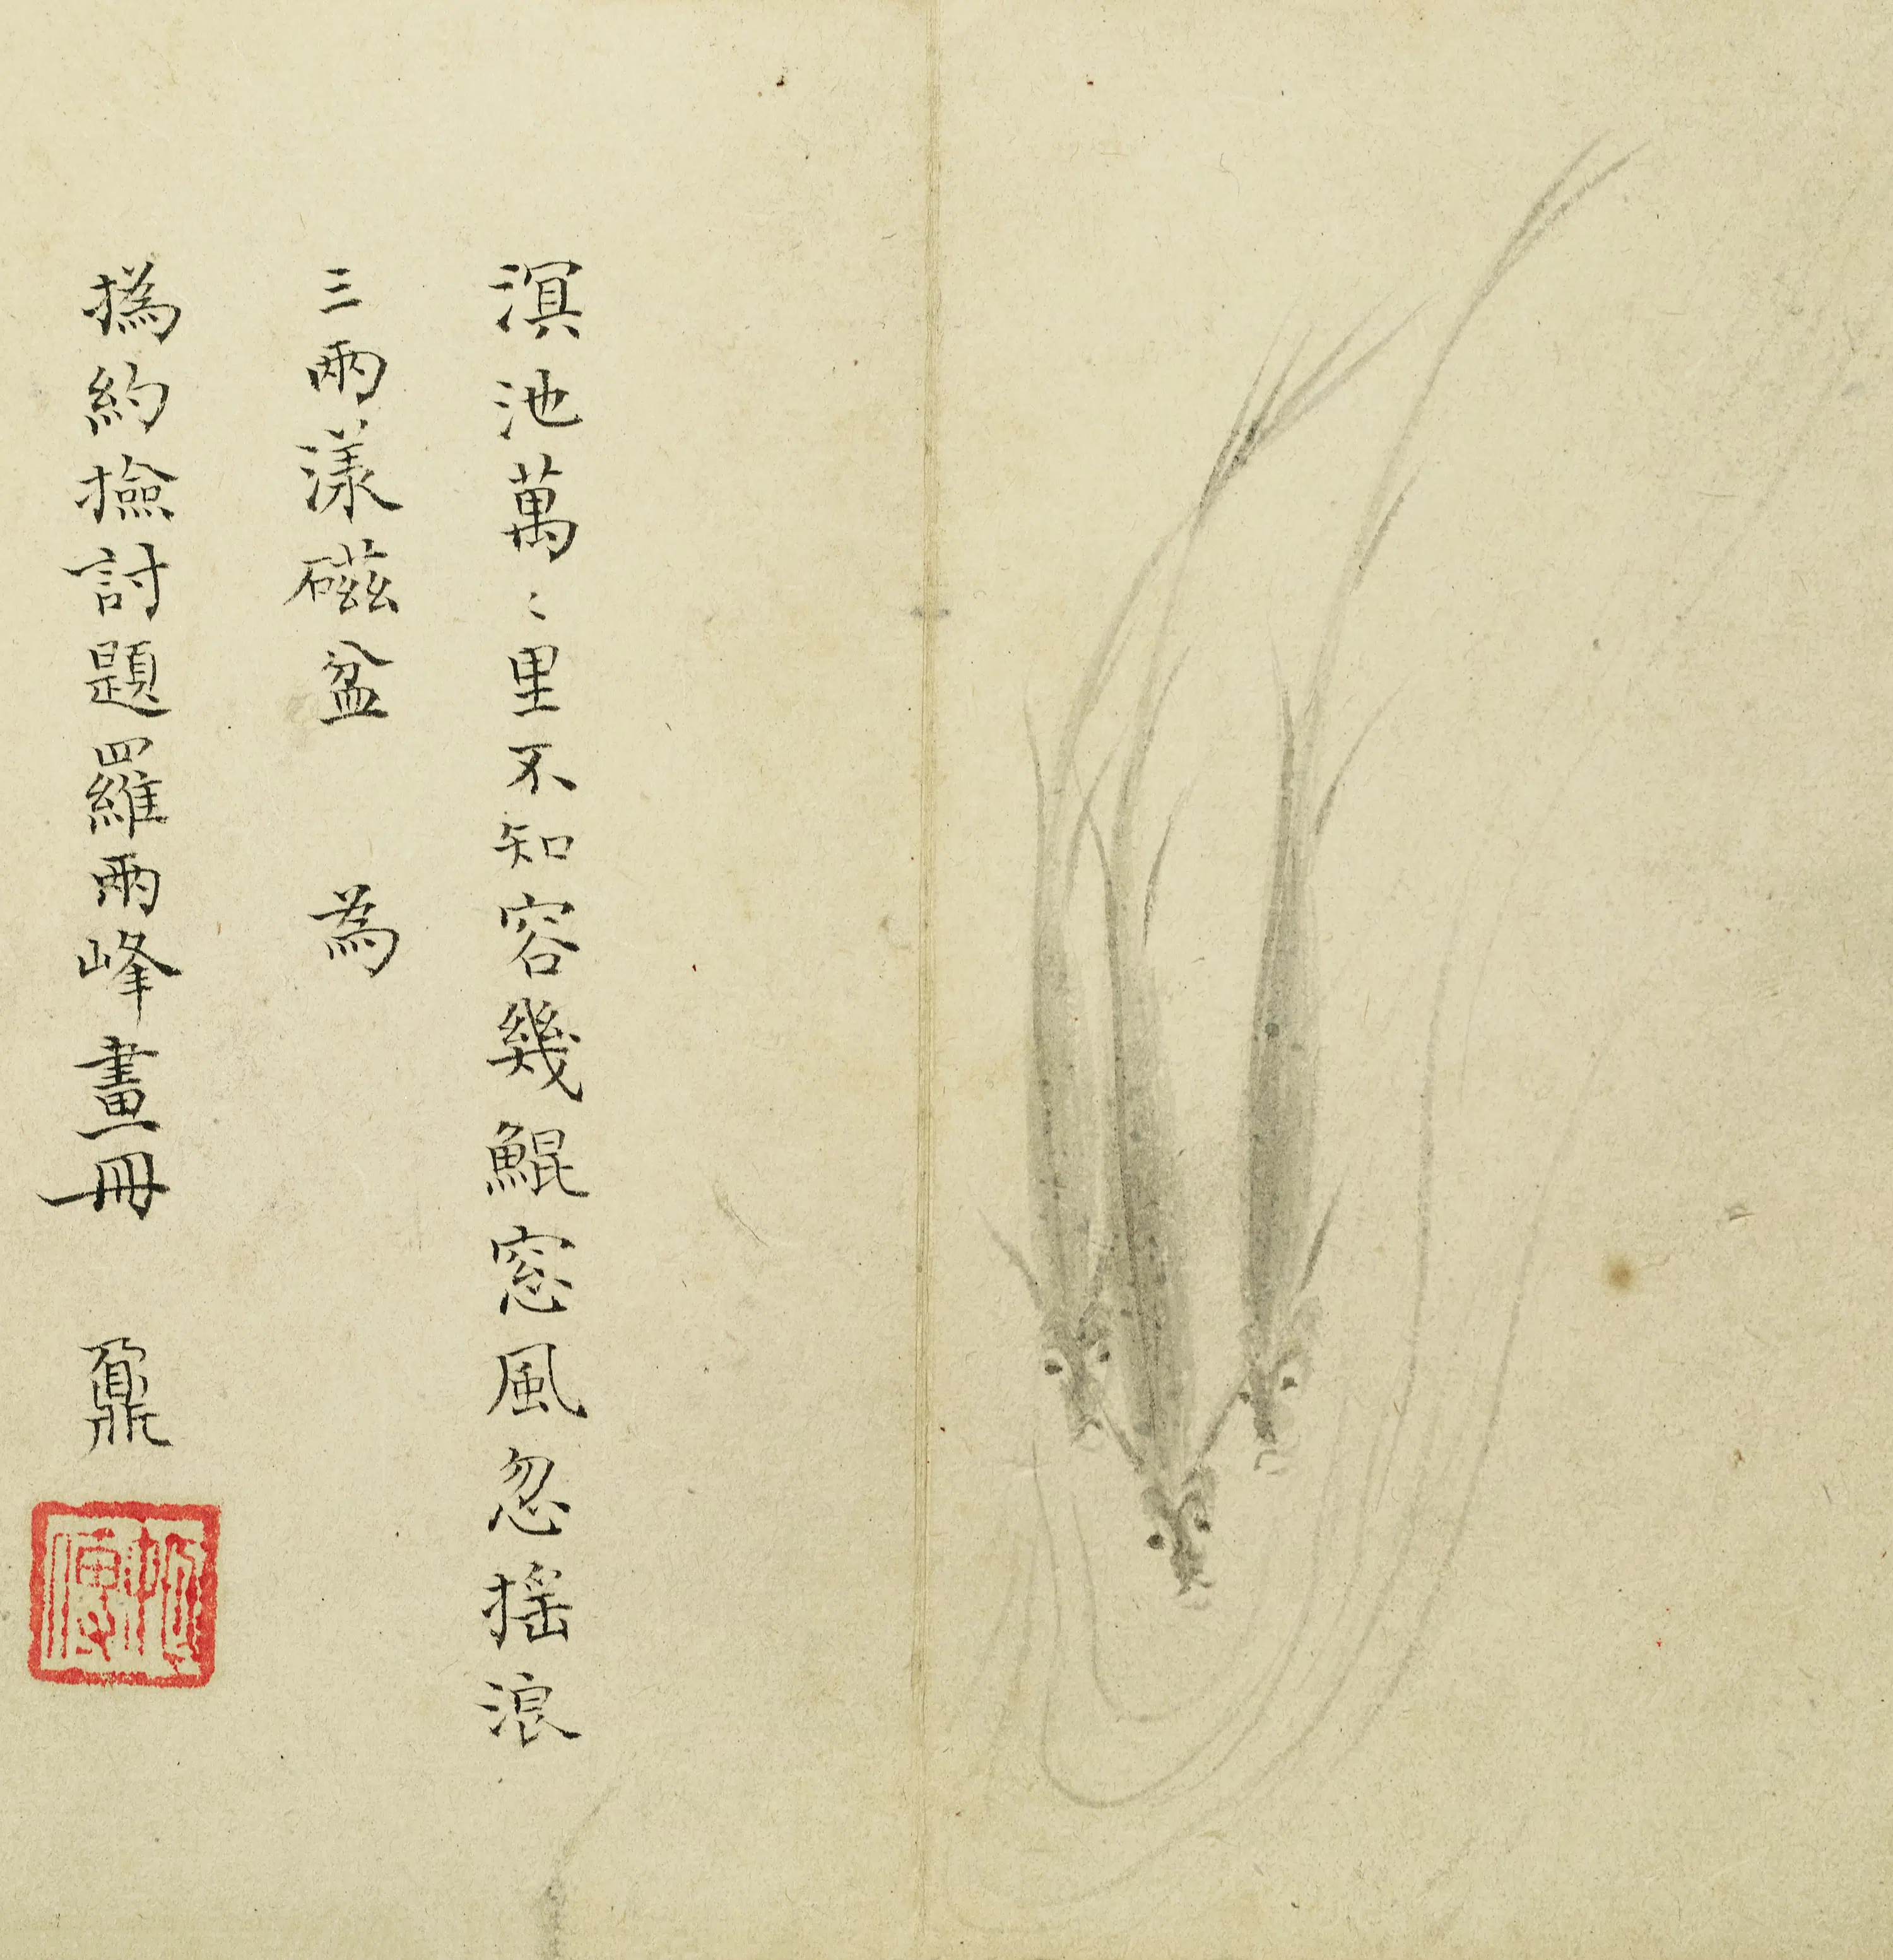 溟池萬〻里不知容幾鯤窓風忽摇浪
三兩漾磁盆　為
撝約撿討題羅兩峰畫冊　鼐